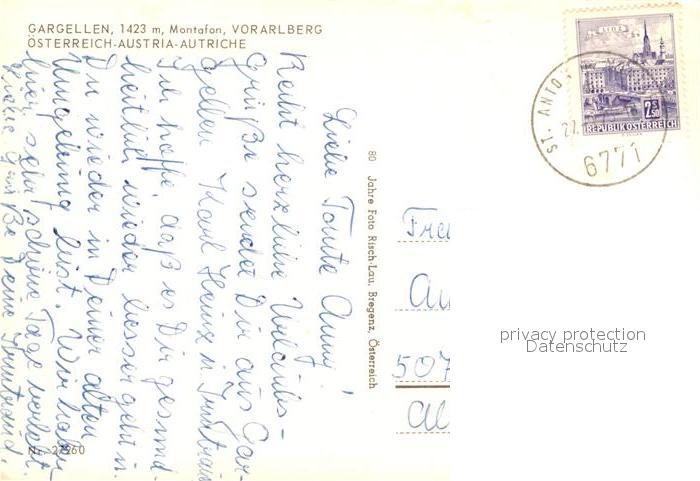 GARGELLEN, 1423 m, Montafon, VORARLBERG
ÖSTERREICH-AUSTRIA-AUTRICHE
LINZ
2 S 50
REPUBLIK ÖSTERREICH
ST. ANTO
27.
6771
Liebe Tante Anny!
Recht herzliche Urlaubs-
Grüße sendet Dir aus Gar-
gellen Karl Heinz u.
Ich hoffe, daß es Dir gesund-
heitlich wieder besser geht u.
Du wieder in Deiner alten
Umgebung bist. Wir haben
hier sehr schöne Tage verlebt.
Grüße Deine
80 Jahre Foto Risch-Lau, Bregenz, Österreich
507
Nr. 27260
privacy protection
Datenschutz